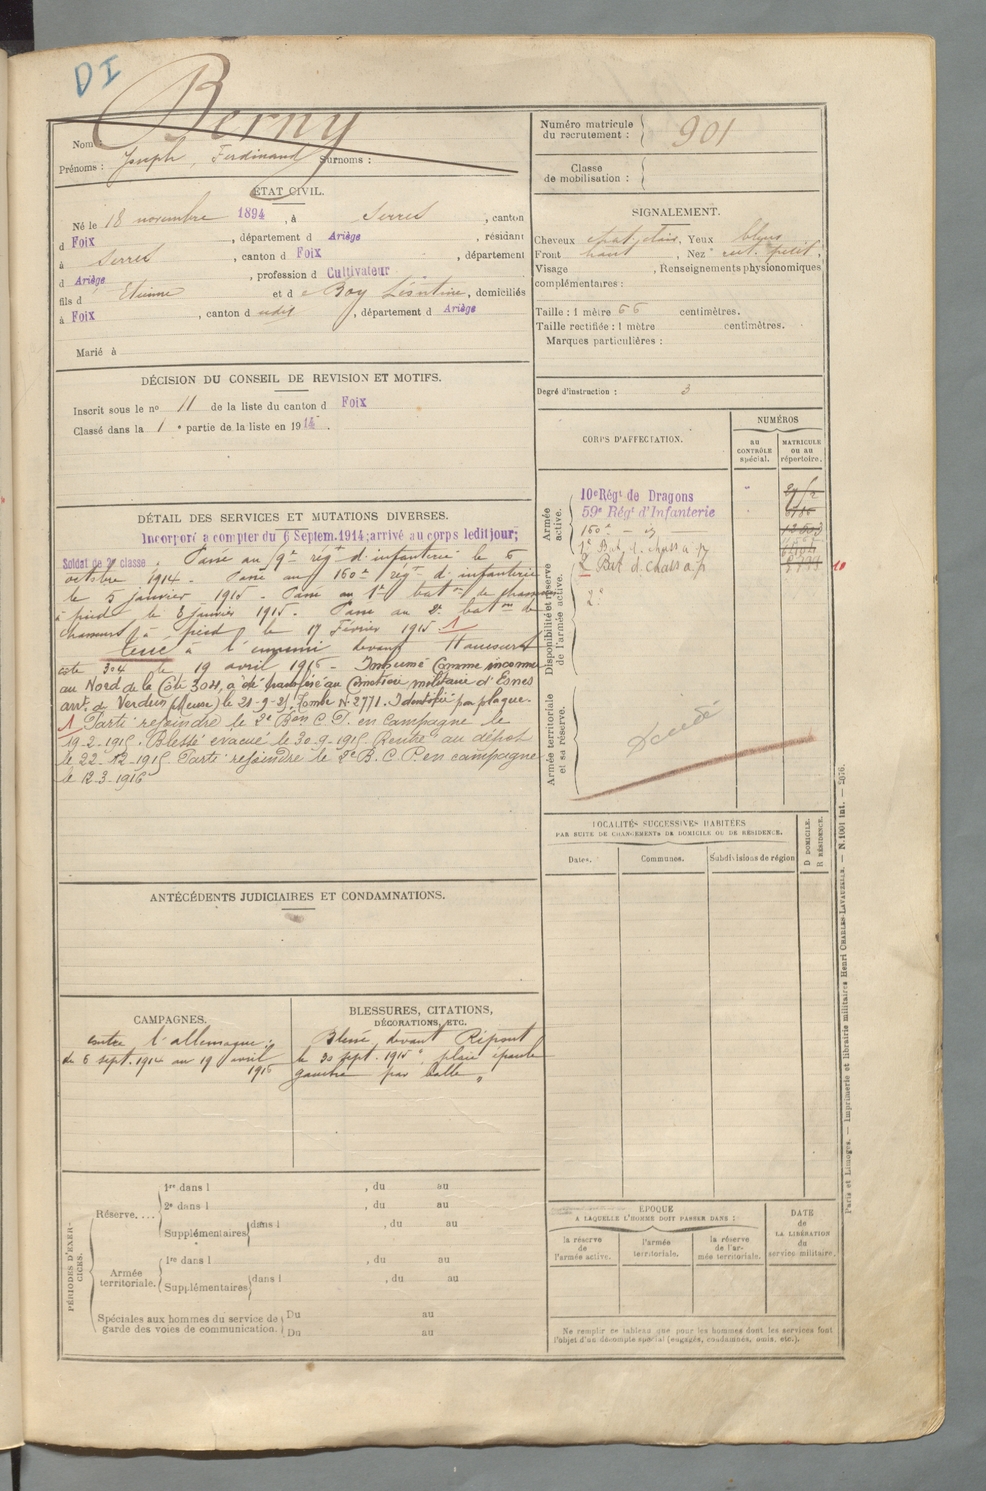 DI
Nom : Berny
Prénoms : Joseph, Ferdinand Surnoms :
Numéro matricule du recrutement : 901
Classe de mobilisation :
ÉTAT CIVIL.
Né le 18 novembre 1894, à Serres, canton
d Foix, département d Ariège, résidant
à Serres, canton d Foix, département
d Ariège, profession d Cultivateur
fils d Etienne et d e Boy Léontine, domiciliés
à Foix, canton d udit, département d Ariège
Marié à
SIGNALEMENT.
Cheveux chat. clair, Yeux bleus
Front haut, Nez rect. petit,
Visage , Renseignements physionomiques
complémentaires :
Taille : 1 mètre 66 centimètres.
Taille rectifiée : 1 mètre centimètres.
Marques particulières :
Degré d'instruction : 3
DÉCISION DU CONSEIL DE REVISION ET MOTIFS.
Inscrit sous le nº 11 de la liste du canton d Foix
Classé dans la 1 e partie de la liste en 1914.
DÉTAIL DES SERVICES ET MUTATIONS DIVERSES.
Incorporé a compter du 6 Septem. 1914; arrivé au corps ledit jour;
Soldat de 2e classe. Passé au 9e régt d'infanterie le 6
octobre 1914. Passé au 160e régt d'infanterie
le 5 janvier 1915. Passé au 1er baton de chasseurs
à pied le 8 janvier 1915. Passé au 2e baton de
chasseurs à pied le 17 Février 1915. 1
Tué à l'ennemi devant Haucourt
côte 304 le 19 avril 1916. Inhumé comme inconnu
au Nord de la Côte 304, a été transféré au Cimetière militaire d'Esnes
arrt. de Verdun (Meuse) le 21-9-21, Tombe N. 2771. Identifié par plaque.
1 Parti rejoindre le 2e Bon C. P. en Campagne le
19-2-1915. Blessé évacué le 30-9-1915. Rentré au dépôt
le 22-12-1915. Parti rejoindre le 2e B. C. P. en campagne
le 12-3-1916
CORPS D'AFFECTATION.
NUMÉROS
au CONTRÔLE spécial.
MATRICULE ou au répertoire.
Armée active.
10e Régt de Dragons
59e Régt d'Infanterie
160e
1e Bat. d. chass à p
2 Bat d. chass à p
Disponibilité et réserve de l'armée active.
2e
Armée territoriale et sa réserve.
Décédé
LOCALITÉS SUCCESSIVES HABITÉES
PAR SUITE DE CHANGEMENTS DE DOMICILE OU DE RÉSIDENCE.
Dates.
Communes.
Subdivisions de région
D DOMICILE.
R RÉSIDENCE.
ANTÉCÉDENTS JUDICIAIRES ET CONDAMNATIONS.
CAMPAGNES.
contre l'allemagne :
du 6 sept. 1914 au 19 avril
1916
BLESSURES, CITATIONS,
DÉCORATIONS, ETC.
Blessé devant Ripont
le 30 sept. 1915 ; plaie épaule
gauche par balle
PÉRIODES D'EXERCICES.
Réserve....
1re dans l , du au
2e dans l , du au
Supplémentaires dans l , du au
Armée territoriale.
1re dans l , du au
Supplémentaires dans l , du au
Spéciales aux hommes du service de garde des voies de communication.
Du au
Du au
ÉPOQUE
A LAQUELLE L'HOMME DOIT PASSER DANS :
la réserve de l'armée active.
l'armée territoriale.
la réserve de l'armée territoriale.
DATE de LA LIBÉRATION du service militaire.
Ne remplir ce tableau que pour les hommes dont les services font
l'objet d'un décompte spécial (engagés, condamnés, omis, etc.).
Paris et Limoges. — Imprimerie et librairie militaires Henri CHARLES-LAVAUZELLE. — N. 1001 int. — 2076.